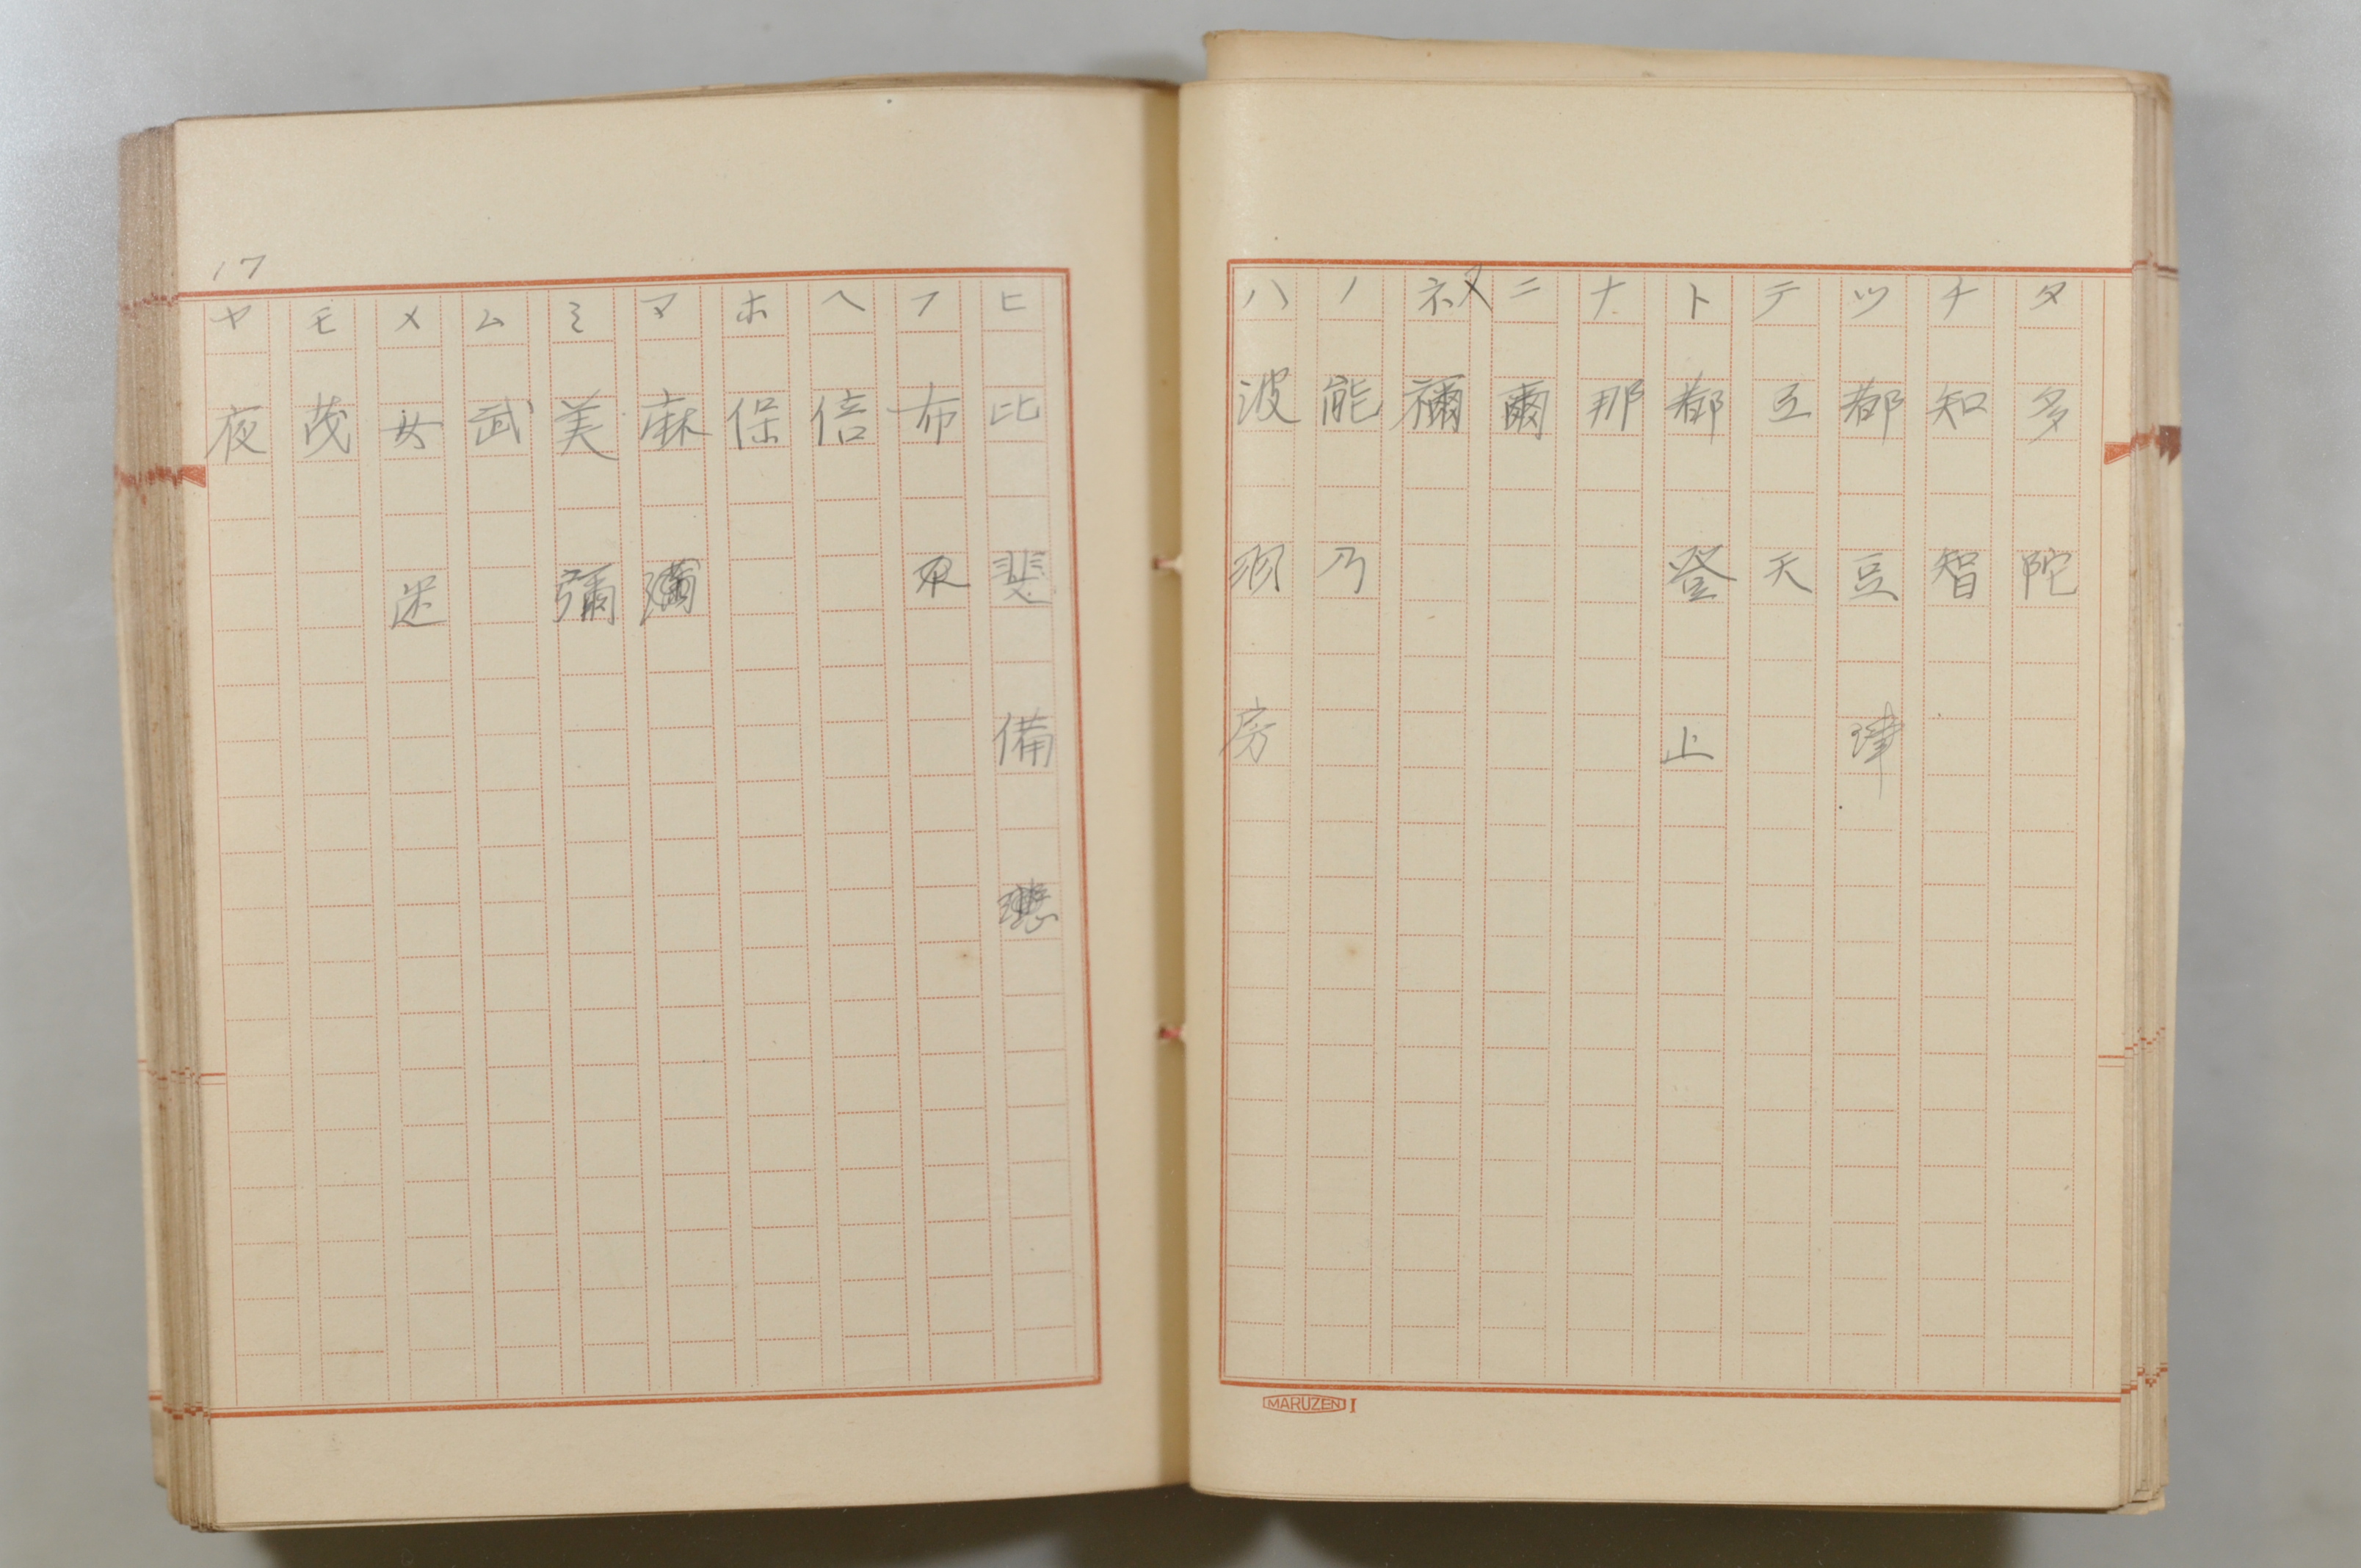 タ 多 陀
チ 知 智
ツ 都 豆 津
テ 弖 天
ト 都 登 止
ナ 那
ニ 爾
ヌ
ネ 禰
ノ 能 乃
ハ 波 羽 房
MARUZEN I
ヒ 比 斐 備
フ 布
ヘ 倍
ホ 保
マ 麻
ミ 美 彌
ム 武
メ 女 迷
モ 茂
ヤ 夜
17